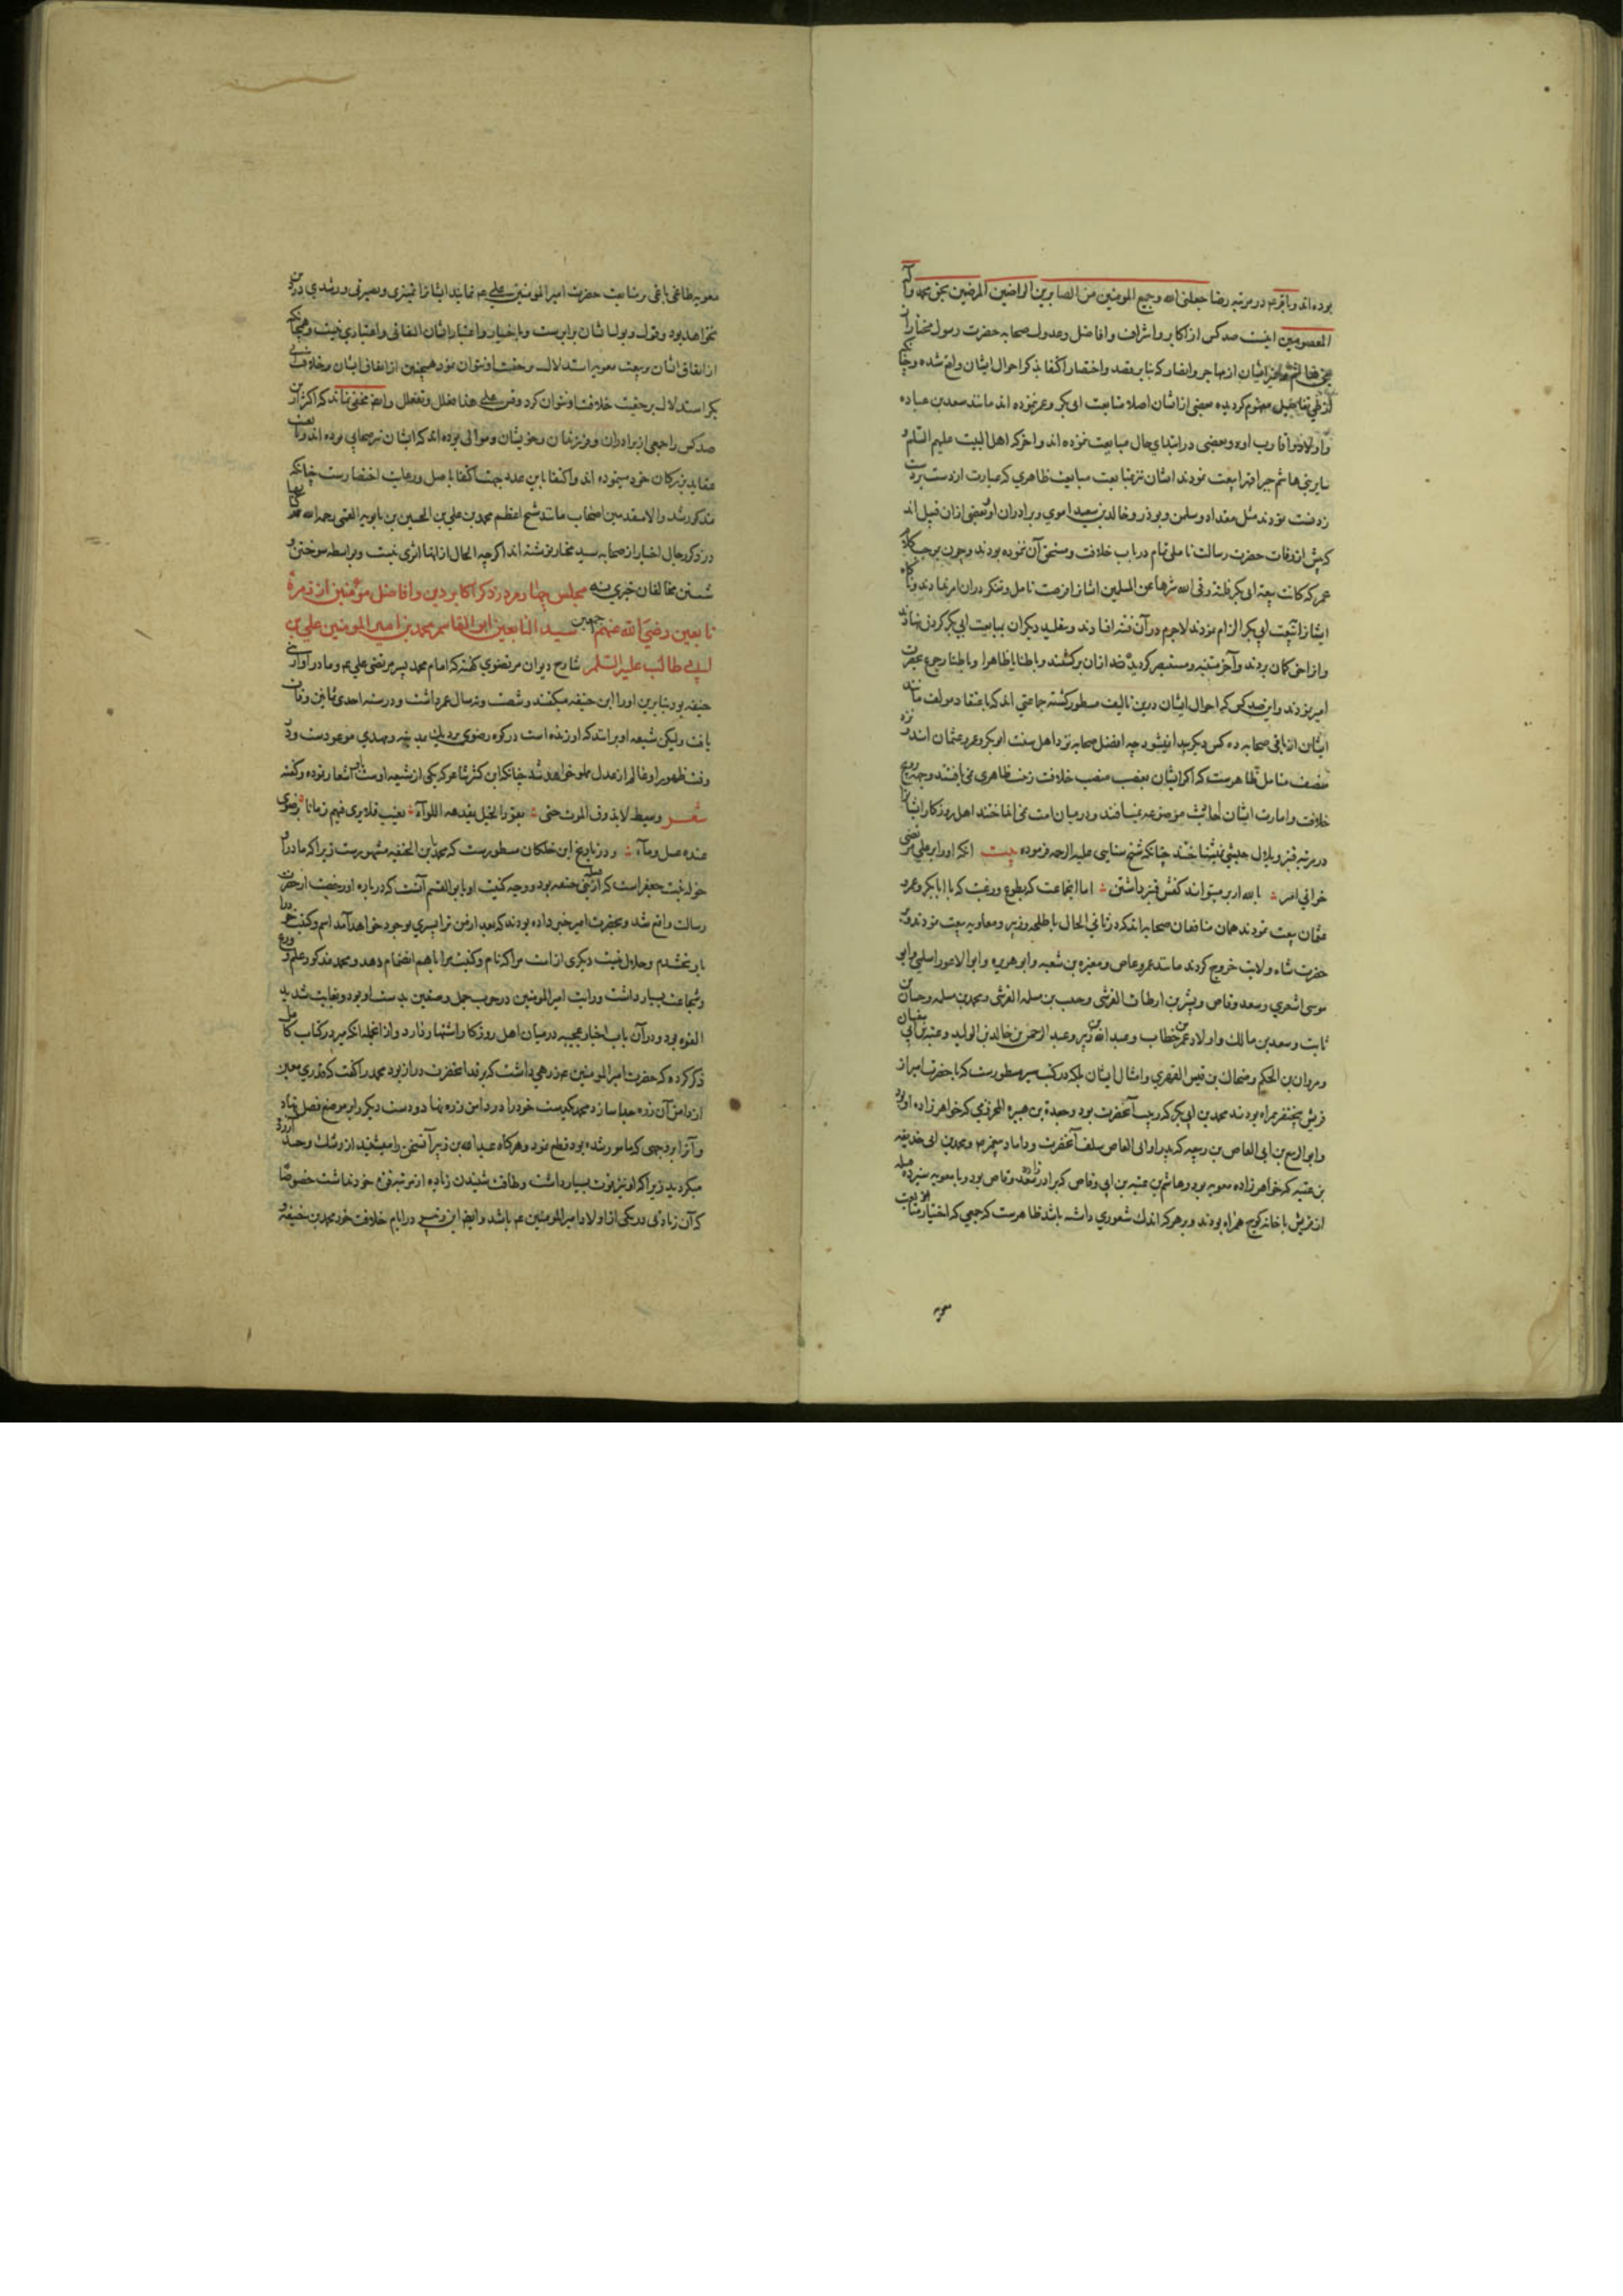 بوده‌اند و باقر عم در مرتبه رضا جعلنی الله و جمیع المومنین من الصابرین الراضین المرضین بحق محمد و آله
المعصومین اینست صد کس از اکابر و اشراف و افاضل و عدول صحابه حضرت رسول مختار
از ایشان از مهاجر و انصار که بنابر مقصد و اختصار اکتفا بذکر احوال ایشان واقع شده و چنانکه
از طی مفهوم کردیده بعضی از ایشان اصلا متابعت ابی بکر و عمر ننموده اند مانند سعد بن عباده
و اولاد و اقارب او و بعضی در ابتدای حال مبایعت ننموده اند و آخر که اهل البیت علیهم السلم و
سایر بنی هاشم جبرا قهرا بیعت نمودند ایشان نیز متابعت مبایعت ظاهری که عبارت از دست بر دست
زدنست نمودند مثل مقداد و سلمن و بوذر و خالد بن سعید اموی و برادران او و بعضی ازان قبیل اند
که پیش از وفات حضرت رسالت تامل تمام در باب خلافت و مستحق آن ننموده بودند و چون بموجب کلام
عمر که کانت بیعة ابی بکر فلتة وقی الله شرها عن المسلمین ایشانرا فرصت تامل و تفکر دران امر ندادند
ایشانرا ببیعت ابی بکر الزام نمودند لاجرم در آن فتنه افتادند و بتقلید دیکران ببیعت ابی بکر کردن نهادند
و از آخر متنبه و مستبصر کردیده ازان برکشتند و باطنا یا ظاهرا و باطنا رجوع بحضرت
امیر نمودند و این صد کس که احوال ایشان درین تالیف مسطور کشته جماعتی اند که باعتقاد مولف مانند
ایشان از باقی صحابه ده کس دیکر پیدا نمیشود چه افضل صحابه نزد اهل سنت ابو بکر و عمر و عثمان اند و نزد
منصف متامل ظاهرست که اکر ایشان بغصب منصب خلافت رفعت ظاهری نمی یافتند و جهة
خلافت و امارت ایشان احادیث موضوعه نمیبافتند و در میان امت نمی انداختند اهل روزکار ایشانرا
در مرتبه قنبر و بلال حبشی نمیشناختند چنانکه شیخ سنایی علیه الرحمه فرموده بیت انکه او را بر علی مرتضی
خوانی امیر بالله ار بر میتواند کفش قنبر داشتن اما انجماعت که بطوع و رغبت که با ابا بکر و عمر و
عثمان بیعت نمودند همان منافقان صحابه اند که در ثانی الحال با طلحه و زبیر و معاویه بیعت نمودند و بر
حضرت شاه ولایت خروج کردند مانند عمرو عاص و مغیره بن شعبه و ابو هریره و ابو الاعور اسلمی و ابو
موسی اشعری و سعد وقاص و بشر بن ارطات القرشی و حبیب بن مسلمه القرشی و محمد بن مسلمه و حسان بن
ثابت و سعد بن مالک و اولاد عمر بن خطاب و عبد الله بن زبیر و عبد الرحمن بن خالد بن الولید و عتبه بن ابی سفیان
و مروان بن الحکم و ضحاک بن قیس الفهری و امثال ایشان بلکه در کتب سیر مسطورست که با حضرت امیر از
قریش پنج نفر همراه بودند محمد بن ابی بکر که ربیب آنحضرت بود و جعدة بن هبیره المخزومی که خواهر زاده او بود
و ابو الربیع بن ابی العاص بن ربیعه که پدر او ابی العاص سلف آنحضرت و داماد پیغمبر بود و محمد بن ابی حذیفه
بن عتبه که خواهر زاده معویه بود و هاشم بن عتبه بن ابی وقاص که برادر زاده سعد وقاص بود و با معویه سیزده قبیله
از قریش با خانه کوچ همراه بودند و بر هر که اندک شعوری داشته باشد ظاهرست که جمعی که اختیار متابعت
معویه
معویه طاغی باغی بر متابعت حضرت امیر المومنین علی عم نمایند ایشانرا تمیزی و بصیرتی و رشدی در دین
نخواهد بود و قول و بول ایشان برابرست و باختیار و اعتبار ایشان التفاتی و اعتباری نیست و همچنانکه
از اتفاق ایشان و بیعت معویه استدلال بر حقیت او نتوان نمود همچنین از اتفاق ایشان و خلافت ابی
بکر استدلال بر حقیت خلافت او نتوان کرد و قس علی هذا فعلل و تفعلل و ایضا مخفی نماند که اکثر این
صد کس را جمعی از برادران و فرزندان و خویشان و موالی بوده اند که ایشان نیز صحابی بوده اند و
عقاید بزرکان خود مینموده اند و اکتفا باین عدد بجهت اکتفا باصل و رعایت اختصارست چنانکه
مذکور شد و الا متقدمین اصحاب مانند شیخ اعظم محمد بن علی بن الحسین بن بابویه القمی رحمه الله
در ذکر رجال اخیار از صحابه سید مختار نوشته اند اکرچه الحال ازانها اثری نیست و بواسطه سوختن و
شستن مخالفان خبری نه مجلس چهارم در ذکر اکابر دین و افاضل مؤمنین از زمرهٔ
تابعین رضی الله عنهم اجمعین سید التابعین ابو القاسم محمد بن امیر المومنین علی بن
ابی طالب علیه السلم شارح دیوان مرتضوی کفته که امام محمد پسر مرتضی علی عم و مادر او از بنی
حنیفه بود بنابرین او را ابن حنفیه میکفتند و شصت و نه سال عمر داشت و در سنه احدی ثمانین وفات
یافت ولیکن شیعه او برانند که او زنده است در کوه رضوی و مهدی موعودست و در
وقت ظهور او عالم از عدل مملو خواهد شد چنانکه ابن کثیر شاعر که یکی از شیعه اوست اشعار نموده و کفته
شعر وسبط لا یذوق الموت حتی یقود الخیل یقدمه اللوآء تغیب فلا یری فیهم زمانا برضوی
عنده عسل ومآء و در تاریخ ابن خلکان مسطورست که محمد ابن الحنفیه مشهورست زیرا که مادر او
خوله بنت جعفر است که از بنی حنیفه بود و وجه کنیت او بابو القسم آنست که در باره او رخصت از حضرت
رسالت واقع شد و بحضرت امیر خبر داده بودند که بعد از من ترا پسری بوجود خواهد آمد اسم و کنیت خود را
باو بخشیدم و حلال نیست دیکری از امت مرا که نام و کنیت مرا باهم انضمام دهد و محمد مذکور علم و ورع
و شجاعت بسیار داشت و رایت امیر المومنین در حرب جمل و صفین بدست او بود و بغایت شدید
القوه بود و در آن باب اخبار عجیبه در میان اهل روزکار اشتهار دارد و ازانجمله انکه مبرد در کتاب کامل
ذکر کرده که حضرت امیر المومنین عم زرهی داشت که بر قد انحضرت دراز بود محمد را کفت که قدری معین
از دامن آن زره جدا سازد محمد یکدست خود را در دامن زره نهاد و دست دیکر را بر موضع فصل نهاد
و آنرا بر وجهی که مامور شده بود قطع نمود و هرکاه عبد الله بن زبیر آن سخن را میشنید از رشک و حسد
میکردید زیرا که او نیز قوت بسیار داشت و طاقت شنیدن زیاده از مرتبه قوه خود نداشت خصوصا
که آن زیادتی در یکی از اولاد امیر المومنین عم باشد و ایضا ابن زبیر در ایام خلافت خود محمد بن حنیفه و